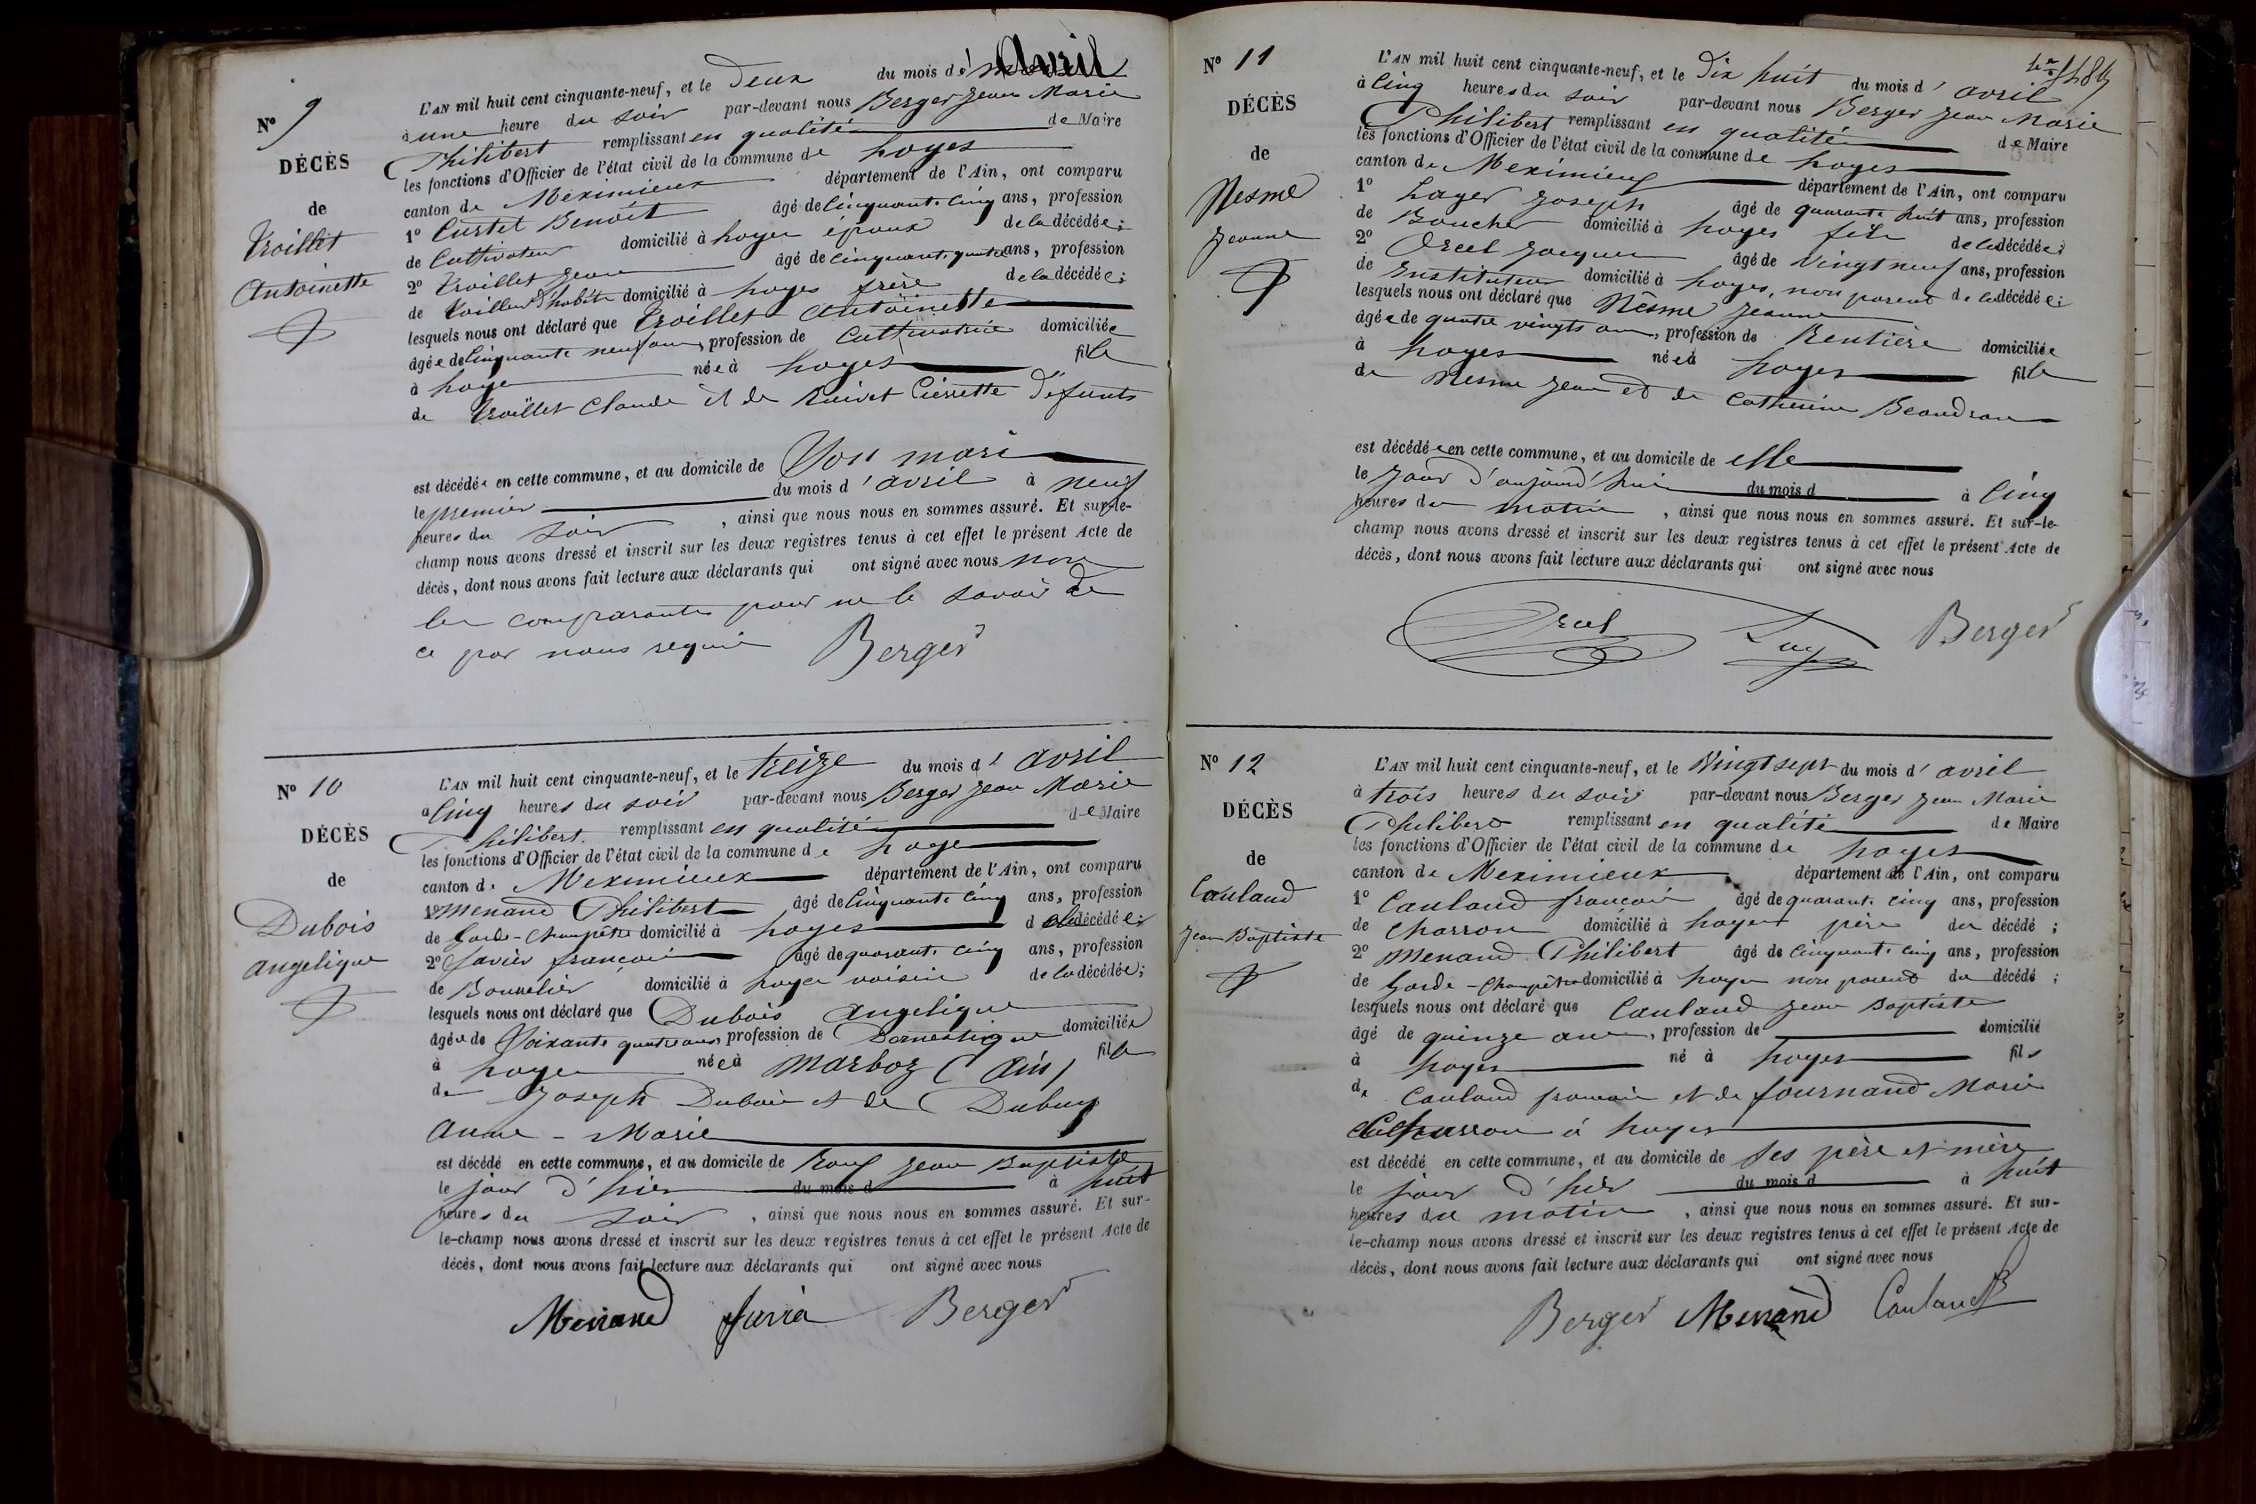 N° 9
DÉCÈS
de
Troillet
Antoinette
L'AN mil huit cent cinquante-neuf, et le Deux du mois d' Avril
à une heure du soir par-devant nous Berger Jean Marie
Philibert remplissant en qualité de Maire
les fonctions d'Officier de l'état civil de la commune de Loyes
canton de Meximieux département de l'Ain, ont comparu
1° Custet Benoît âgé de Cinquante Cinq ans, profession
de Cultivateur domicilié à Loyes époux de la décédée ;
2° Troillet Jean âgé de Cinquante quatre ans, profession
de Tailleur d'habits domicilié à Loyes frère de la décédée ;
lesquels nous ont déclaré que Troillet Antoinette
âgée de Cinquante neuf ans, profession de Cultivatrice domiciliée
à Loyes née à Loyes fille
de Troillet Claude et de Pierrette Défunts
est décédée en cette commune, et au domicile de Son mari
le premier du mois d'avril à neuf
heures du soir , ainsi que nous nous en sommes assuré. Et sur-le-
champ nous avons dressé et inscrit sur les deux registres tenus à cet effet le présent Acte de
décès, dont nous avons fait lecture aux déclarants qui ont signé avec nous non
les comparants pour ne le savoir de
ce par nous requis Berger
N° 10
DÉCÈS
de
Dubois
Angelique
L'AN mil huit cent cinquante-neuf, et le treize du mois d' avril
à Cinq heures du soir par-devant nous Berger Jean Marie
Philibert remplissant en qualité de Maire
les fonctions d'Officier de l'état civil de la commune de Loyes
canton de Meximieux département de l'Ain, ont comparu
1° Menand Philibert âgé de Cinquante Cinq ans, profession
de Garde-Champêtre domicilié à Loyes de la décédée ;
2° Javier françois âgé de quarante cinq ans, profession
de Bourrelier domicilié à Loyes voisin de la décédée ;
lesquels nous ont déclaré que Dubois Angelique
âgée de Soixante quatre ans, profession de Domestique domiciliée
à Loyes née à Marboz (Ain) fille
de Joseph Dubois et de Dubuy
Anne-Marie
est décédé en cette commune, et au domicile de Jean Baptiste
le jour d'hier du mois d à huit
heures du soir , ainsi que nous nous en sommes assuré. Et sur-
le-champ nous avons dressé et inscrit sur les deux registres tenus à cet effet le présent Acte de
décès, dont nous avons fait lecture aux déclarants qui ont signé avec nous
Menand Javié Berger
N° 11
DÉCÈS
de
Nesme
Jeanne
L'AN mil huit cent cinquante-neuf, et le Dix huit du mois d' avril
à Cinq heures du soir par-devant nous Berger Jean Marie
Philibert remplissant en qualité de Maire
les fonctions d'Officier de l'état civil de la commune de Loyes
canton de Meximieux département de l'Ain, ont comparu
1° Joseph âgé de quarante huit ans, profession
de Boucher domicilié à Loyes fils de la décédée ;
2° Orcel Jacques âgé de vingt neuf ans, profession
de Instituteur domicilié à Loyes, non parent de la décédée ;
lesquels nous ont déclaré que Nesme Jeanne
âgée de quatre vingts ans, profession de Rentière domiciliée
à Loyes née à Loyes fille
de Nesme Jean et de Catherine Beaudran
est décédée en cette commune, et au domicile de elle
le Jour d'aujourd'hui du mois d à Cinq
heures du matin , ainsi que nous nous en sommes assuré. Et sur-le-
champ nous avons dressé et inscrit sur les deux registres tenus à cet effet le présent Acte de
décès, dont nous avons fait lecture aux déclarants qui ont signé avec nous
Orcel Berger
N° 12
DÉCÈS
de
Cauland
Jean Baptiste
L'AN mil huit cent cinquante-neuf, et le Vingt sept du mois d' avril
à trois heures du soir par-devant nous Berger Jean Marie
Philibert remplissant en qualité de Maire
les fonctions d'Officier de l'état civil de la commune de Loyes
canton de Meximieux département de l'Ain, ont comparu
1° Cauland françois âgé de quarante cinq ans, profession
de Charron domicilié à Loyes père du décédé ;
2° Menand Philibert âgé de Cinquante cinq ans, profession
de Garde-Champêtre domicilié à Loyes non parent du décédé ;
lesquels nous ont déclaré que Cauland Jean Baptiste
âgé de quinze ans, profession de domicilié
à Loyes né à Loyes fils
de Cauland françois et de fournand Marie
Charron à Loyes
est décédé en cette commune, et au domicile de ses père et mère
le jour d'hier du mois d à huit
heures du matin , ainsi que nous nous en sommes assuré. Et sur-
le-champ nous avons dressé et inscrit sur les deux registres tenus à cet effet le présent Acte de
décès, dont nous avons fait lecture aux déclarants qui ont signé avec nous
Berger Menand Cauland